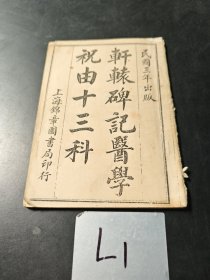 民國三年出版
軒轅碑記醫學
祝由十三科
上海錦章圖書局印行
L1